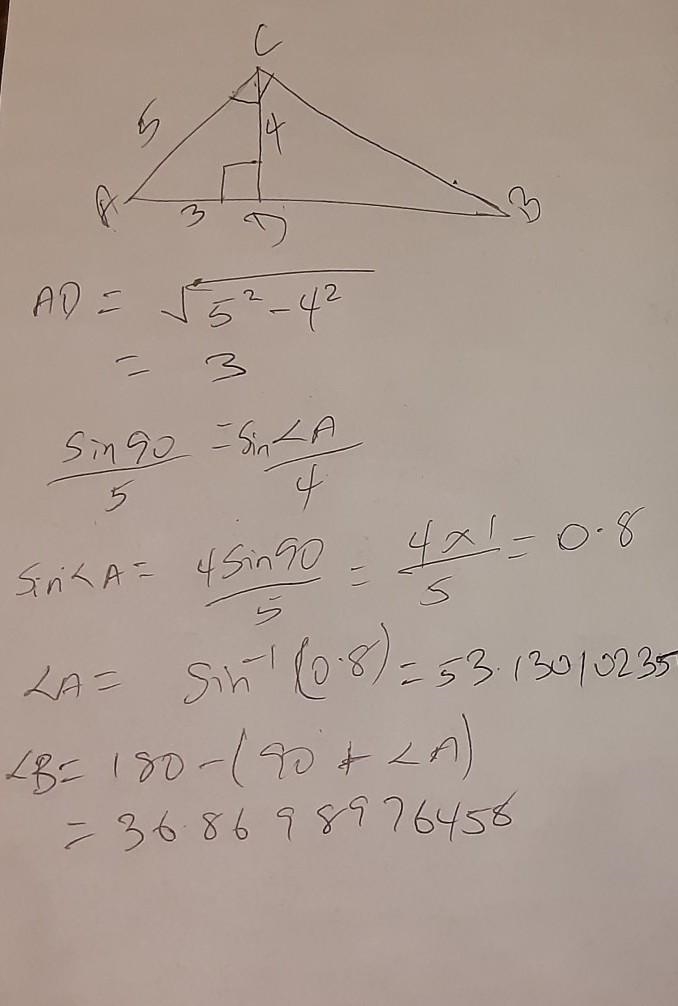 C
5
4
A
3
D
B
AD = √5² - 4²
= 3
Sin90/5 = Sin<A/4
Sin<A = 4Sin90/5 = 4×1/5 = 0.8
<A = Sin⁻¹(0.8) = 53.13010235
<B = 180 - (90 + <A)
= 36.8698976458